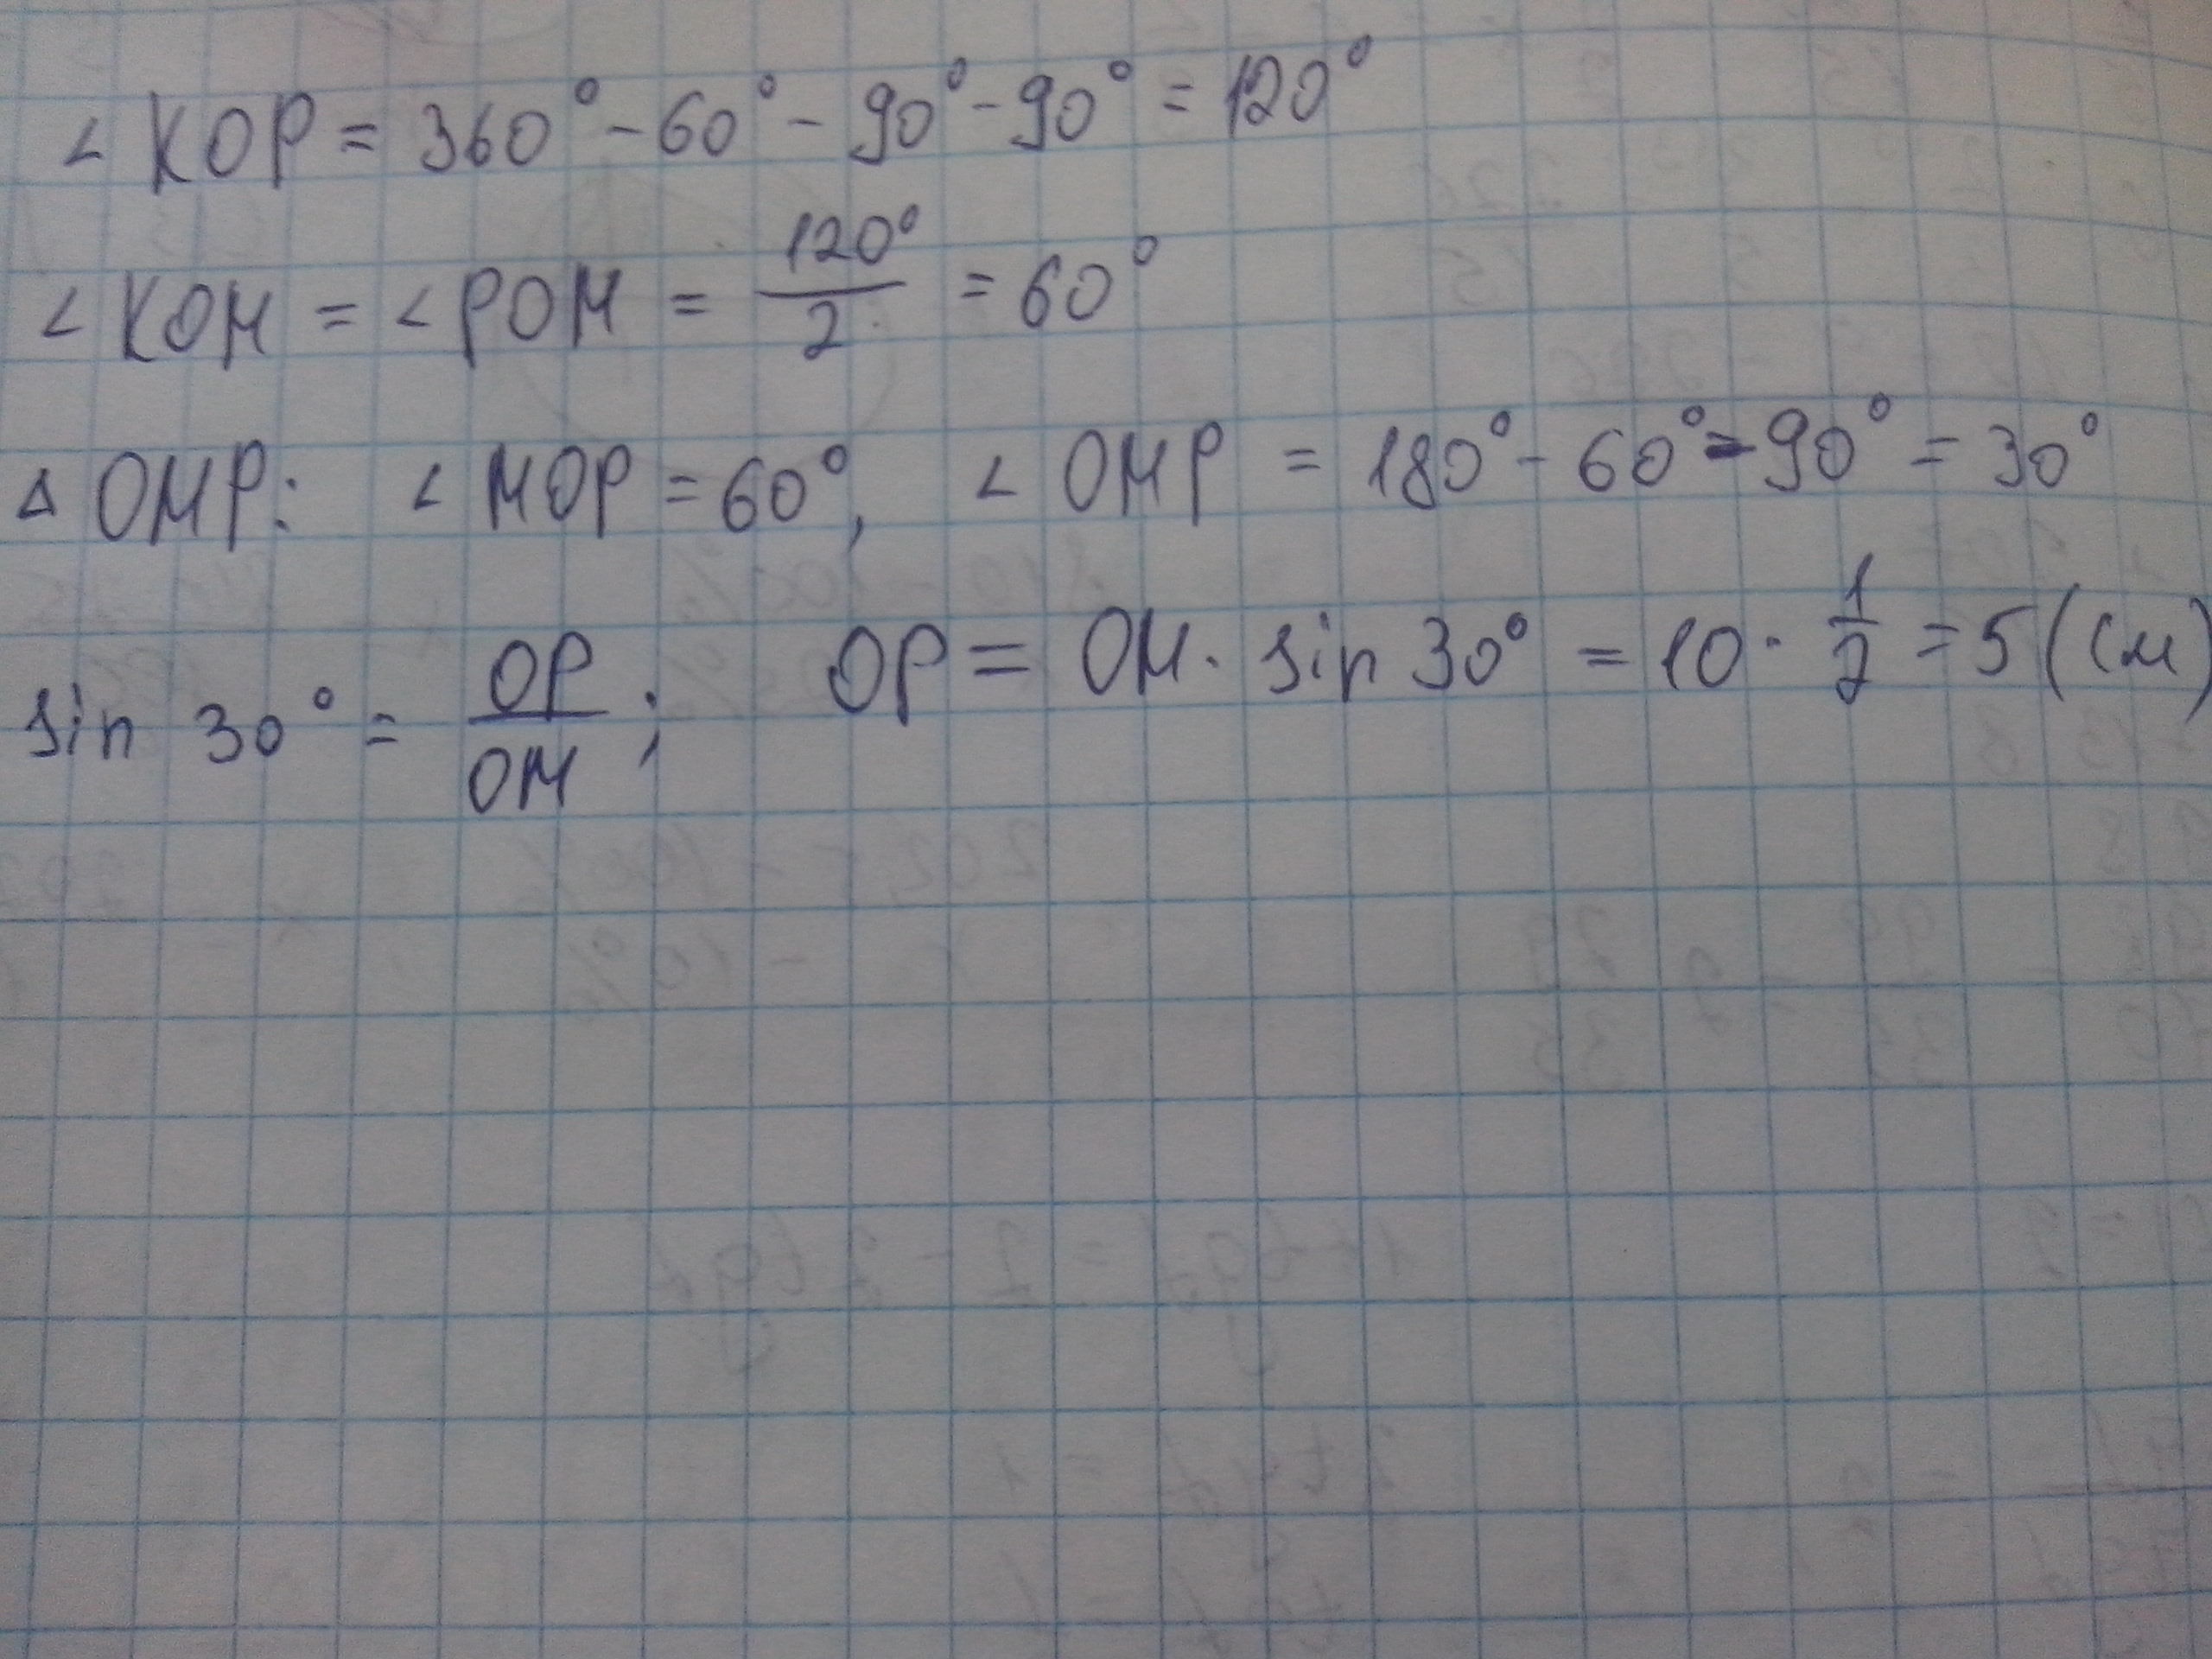 ∠ KOP = 360° - 60° - 90° - 90° = 120°
∠ KOM = ∠ POM = 120°/2 = 60°
Δ OMP: ∠ MOP = 60°, ∠ OMP = 180° - 60° - 90° = 30°
sin 30° = OP/OM ; OP = OM · sin 30° = 10 · 1/2 = 5 (см)